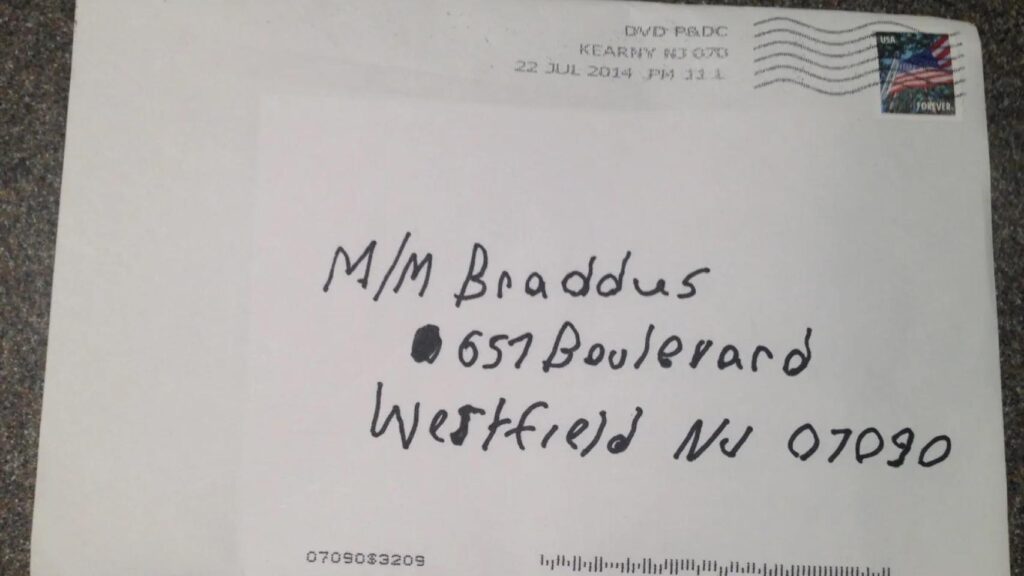 DVD P&DC
KEARNY NJ 070
22 JUL 2014 PM 11 L
USA
FOREVER
M/M Braddus
657 Boulevard
Westfield NJ 07090
07090$3209